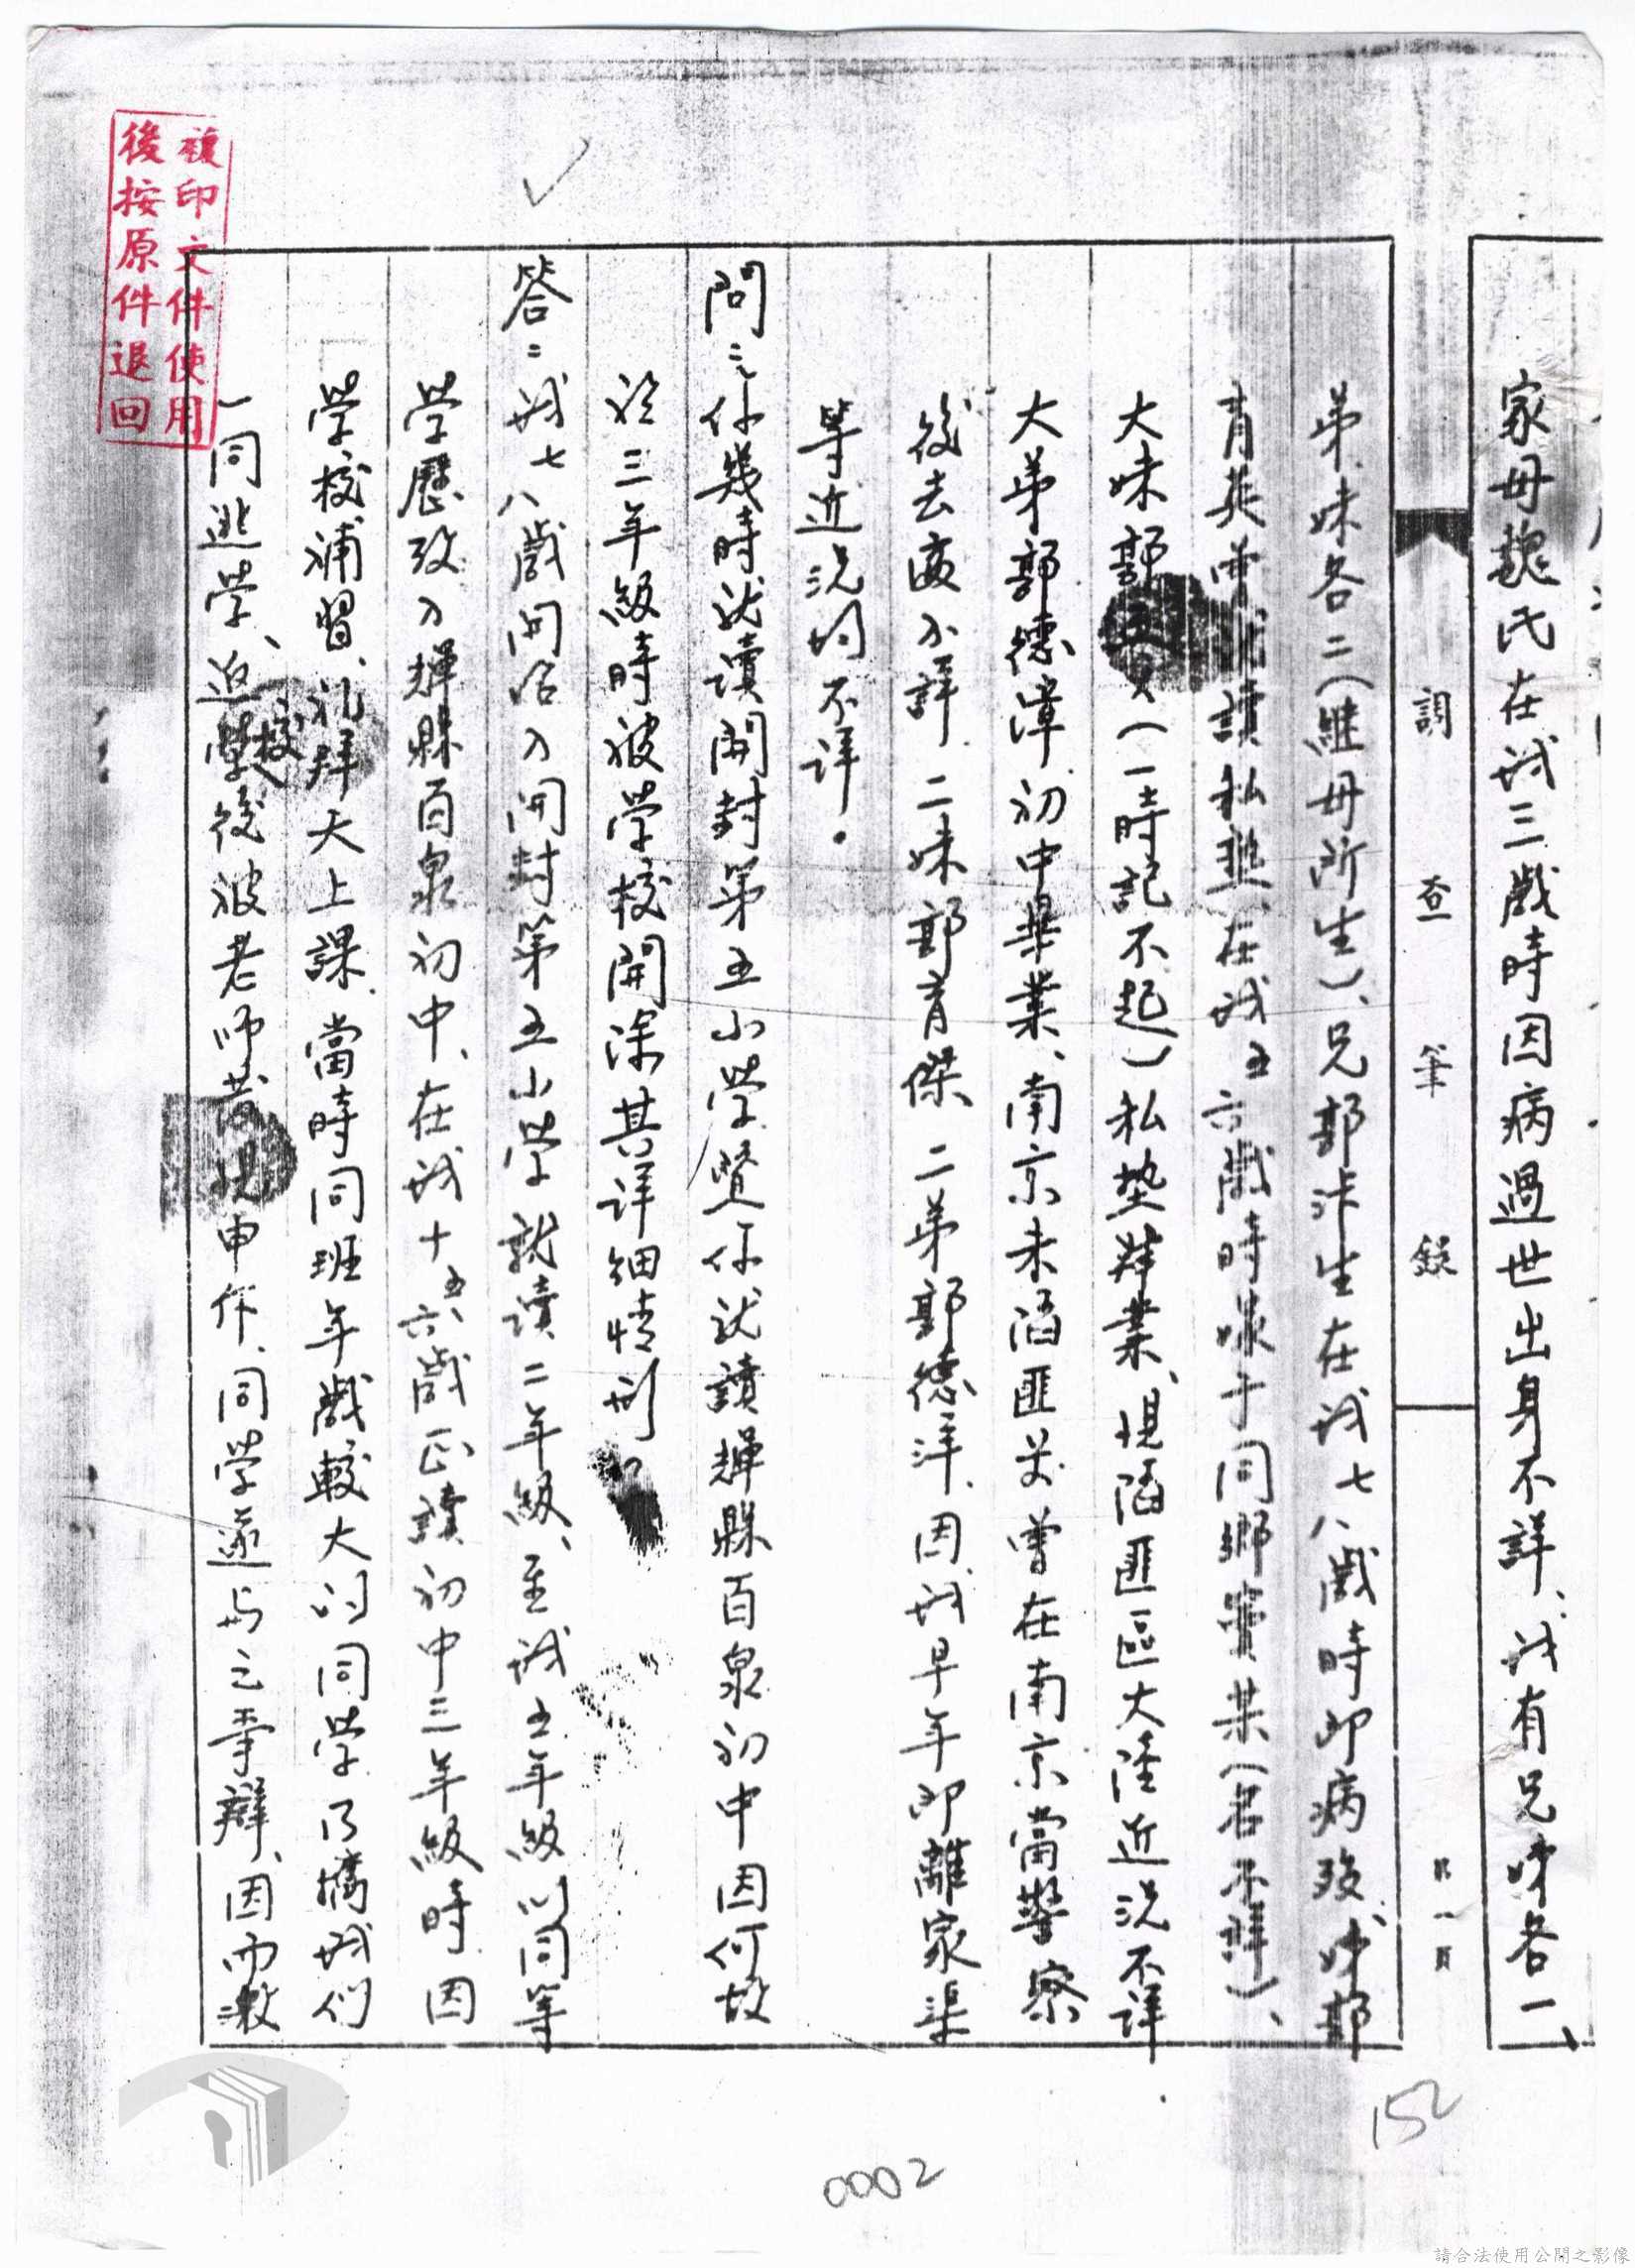 家母魏氏在我三歲時因病過世出身不詳、我有兄姊各一、
調查筆錄
第一頁
弟、妹各二(繼母所生)、兄郭沣生在我七八歲時即病歿、姊郭
育英曾就讀私塾、在我五六歲時嫁于同鄉竇某(名不詳)、
大妹郭(一時記不起)私塾肄業、現陷匪區大陸近況不詳
大弟郭德漳初中畢業、南京未陷匪前曾在南京當警察
後去處不詳、二妹郭育傑、二弟郭德洋、因我早年即離家渠
等近況均不詳。
問:你幾時就讀開封第五小學暨你就讀輝縣百泉初中因何故
於三年級時被學校開除其詳細情形
答:我七八歲間始入開封第五小学就讀二年級、至我五年級以同等
学歷攷入輝縣百泉初中、在我十五六歲正讀初中三年級時、因
学校補習、礼拜天上課、當時同班年歲較大的同学乃攜我們
一同逃学、返校後被老師申斥、同学遂与之爭辯、因而激
複印文件使用
後按原件退回
152
0002
請合法使用公開之影像